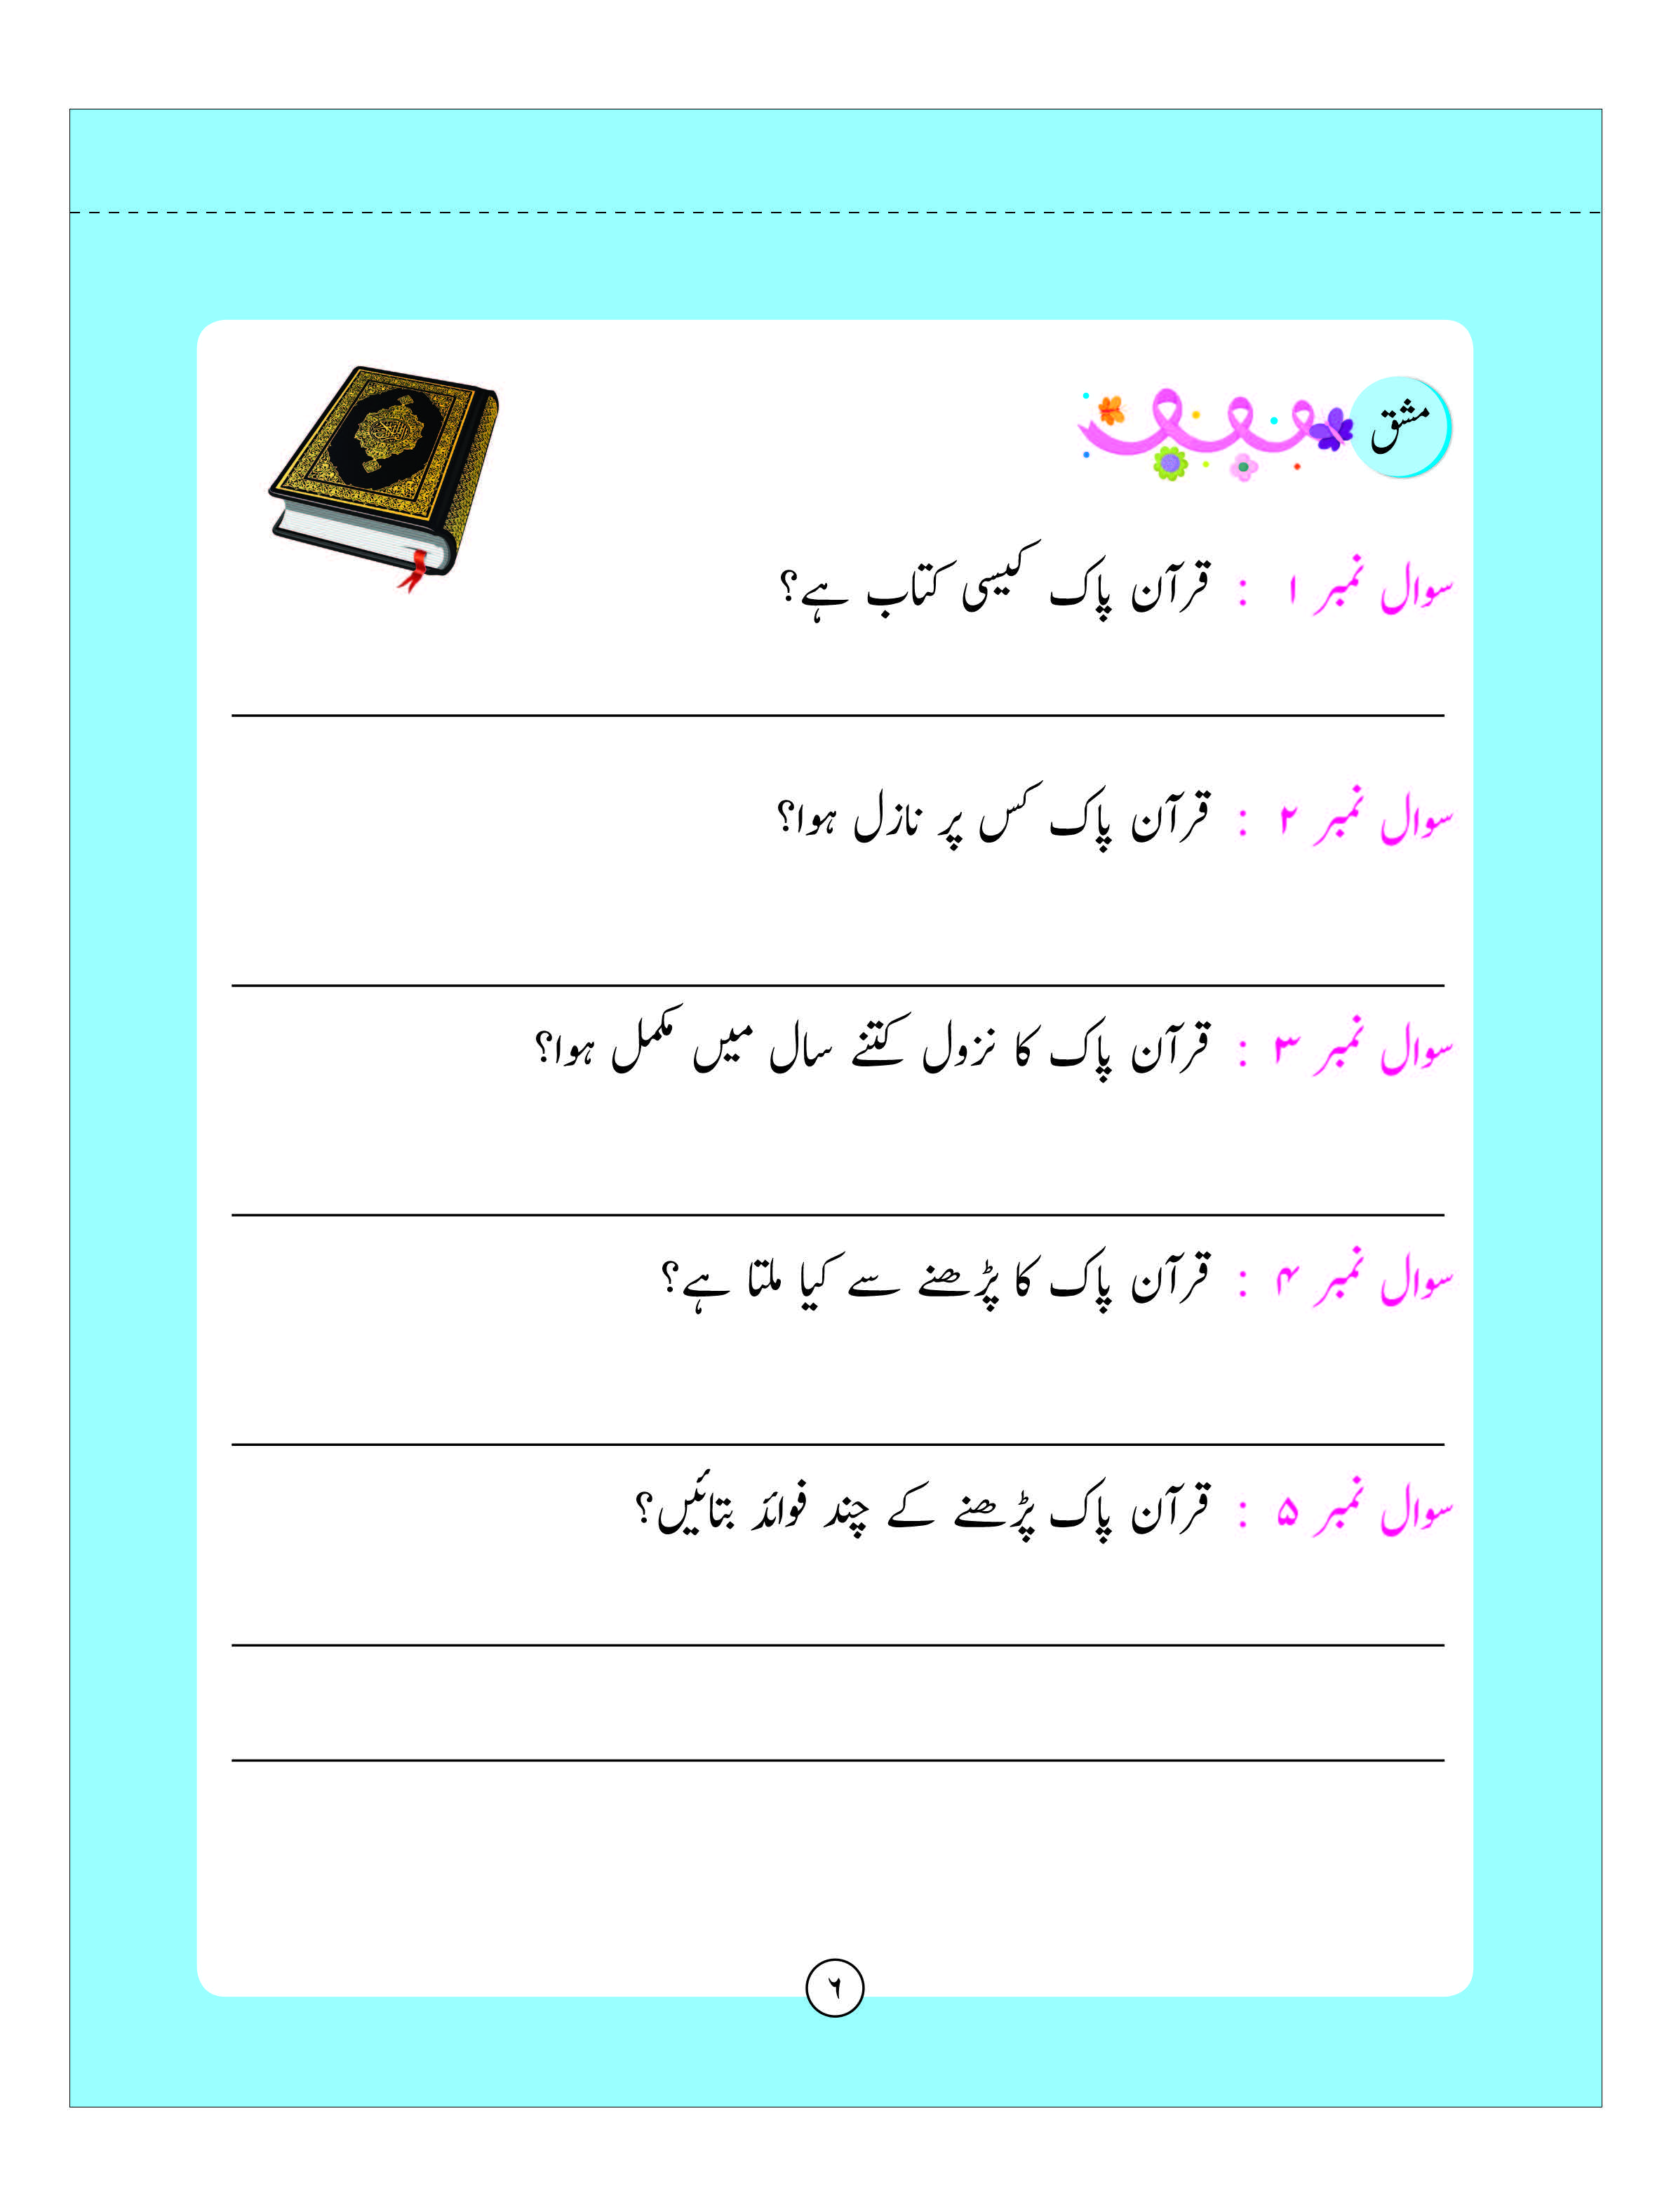 مشق
سوال نمبر ۱ : قرآن پاک کیسی کتاب ہے؟
سوال نمبر ۲ : قرآن پاک کس پر نازل ہوا؟
سوال نمبر ۳ : قرآن پاک کا نزول کتنے سال میں مکمل ہوا؟
سوال نمبر ۴ : قرآن پاک کا پڑھنے سے کیا ملتا ہے؟
سوال نمبر ۵ : قرآن پاک پڑھنے کے چند فوائد بتائیں؟
۶